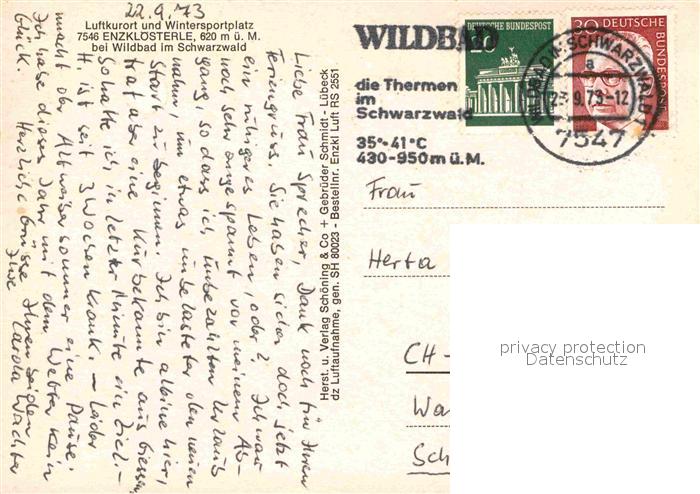 22.9.73
Luftkurort und Wintersportplatz
7546 ENZKLÖSTERLE, 620 m ü. M.
bei Wildbad im Schwarzwald
Liebe Frau Sprecher, Dank noch für Ihren
Feriengruss. Sie haben sicher doch jetzt
ein ruhigeres Leben, oder? Ich war
noch sehr angespannt vor meinem Ab-
gang, so dass ich unbezahlten Urlaub
nahm, um etwas unbelasteter den neuen
Start zu beginnen. Ich bin alleine hier,
trat aber eine Kurbekannte aus
So hatte ich in letzter Minute ein Ziel. -
H. ist seit 3 Wochen krank. - Leider
macht der Altweibersommer eine Pause.
Ich habe dieses Jahr mit dem Wetter kein
Glück. Herzliche Grüsse Ihnen beiden
Ihre Carola Wächter
Herst. u. Verlag Schöning & Co + Gebrüder Schmidt - Lübeck
dz Luftaufnahme, gen. SH 80023 - Bestellnr. Enzkl Luft RS 2551
WILDBAD
die Thermen
im
Schwarzwald
35°-41°C
430-950m ü.M.
DEUTSCHE BUNDESPOST
30 DEUTSCHE
BUNDESPOST
SCHWARZWALD
a
9.73-12
7547
Frau
Herta
CH-
Wa
Sch
privacy protection
Datenschutz